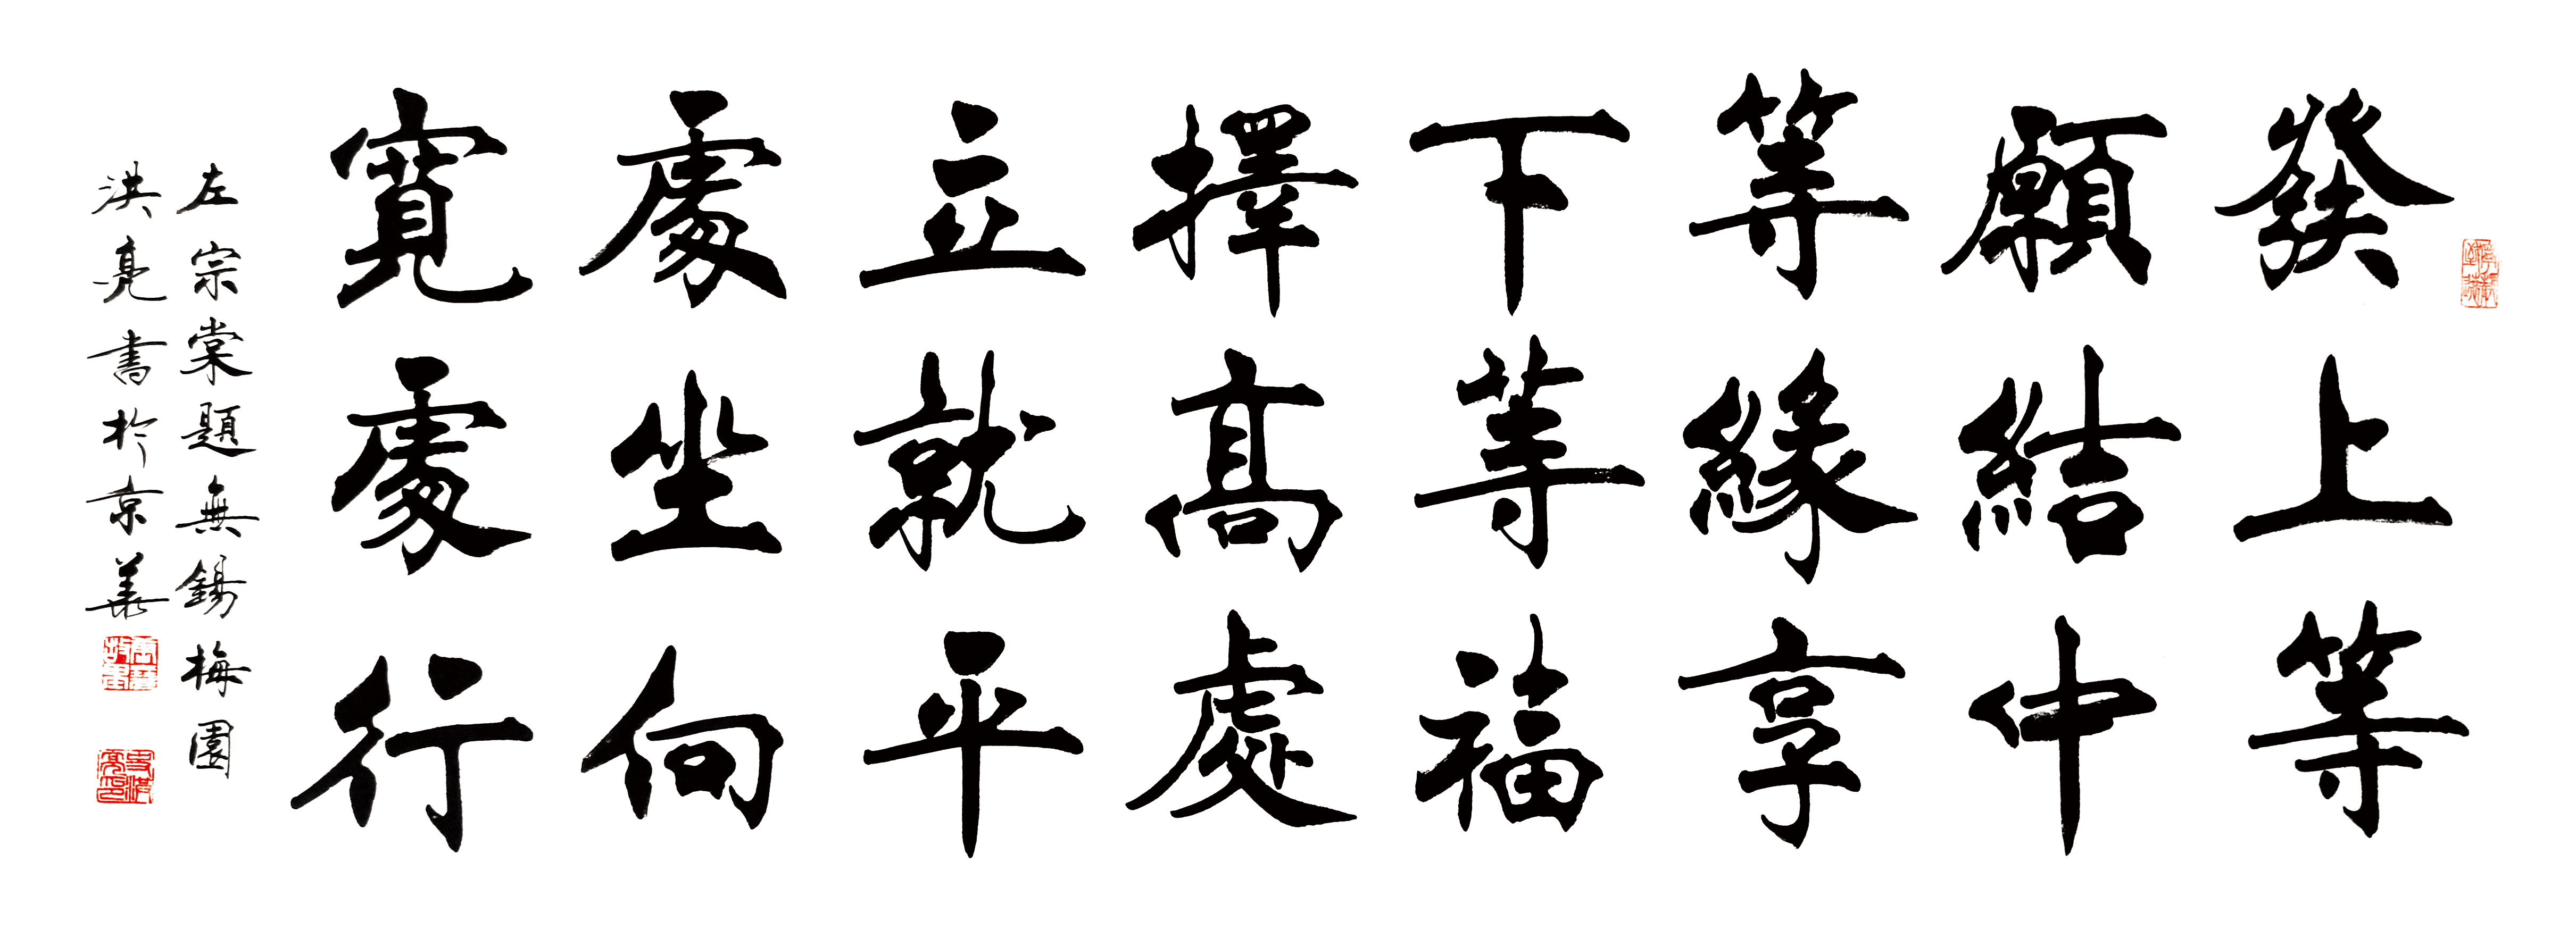 發上等
願結中
等緣享
下等福
擇高處
立就平
處坐向
寬處行
左宗棠題無錫梅園
洪亮書於京華